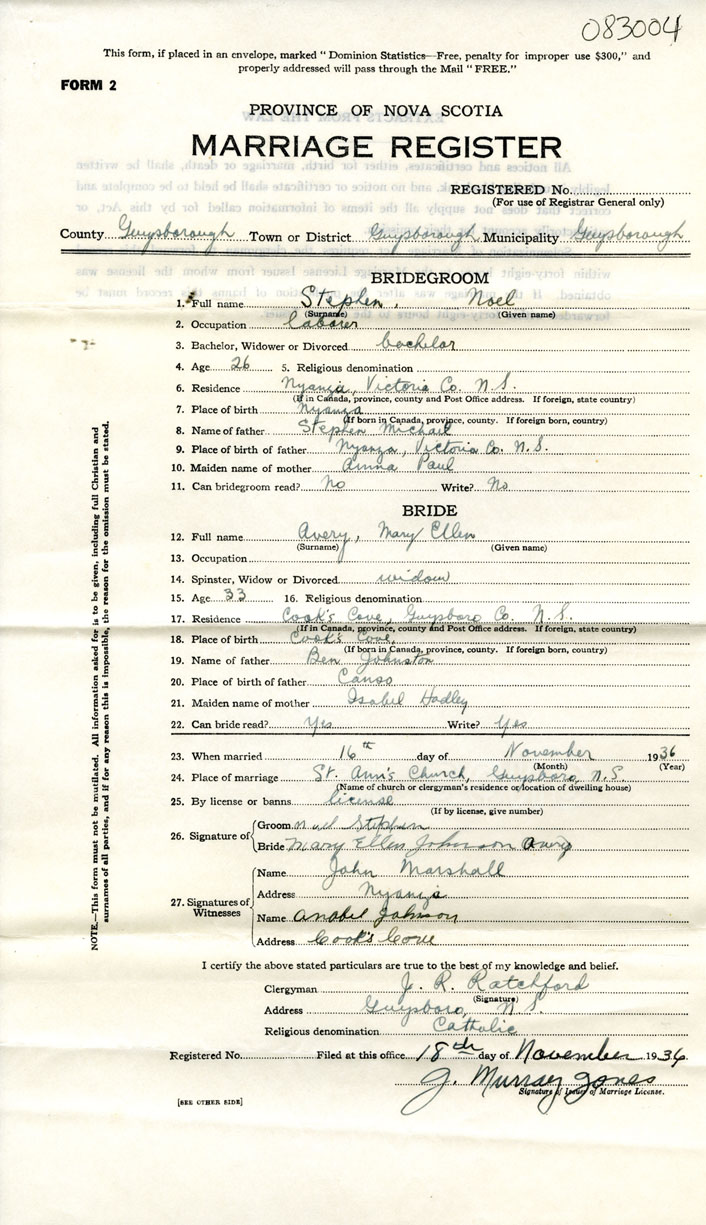 083004
This form, if placed in an envelope, marked " Dominion Statistics—Free, penalty for improper use $300," and
properly addressed will pass through the Mail " FREE."
FORM 2
PROVINCE OF NOVA SCOTIA
MARRIAGE REGISTER
REGISTERED No.
(For use of Registrar General only)
County Guysborough Town or District Guysborough Municipality Guysborough
BRIDEGROOM
1. Full name Stephen, Noel
(Surname) (Given name)
2. Occupation laborer
3. Bachelor, Widower or Divorced bachelor
4. Age 26 5. Religious denomination
6. Residence Nyanza, Victoria Co. N.S.
(If in Canada, province, county and Post Office address. If foreign, state country)
7. Place of birth Nyanza
(If born in Canada, province, county. If foreign born, country)
8. Name of father Stephen Michael
9. Place of birth of father Nyanza, Victoria Co. N.S.
10. Maiden name of mother Anna Paul
11. Can bridegroom read? No Write? No
BRIDE
12. Full name Avery, Mary Ellen
(Surname) (Given name)
13. Occupation
14. Spinster, Widow or Divorced widow
15. Age 33 16. Religious denomination
17. Residence Cook's Cove, Guysboro Co. N.S.
(If in Canada, province, county and Post Office address. If foreign, state country)
18. Place of birth Cook's Cove,
(If born in Canada, province, county. If foreign born, country)
19. Name of father Ben Johnston
20. Place of birth of father Canso
21. Maiden name of mother Isabel Hadley
22. Can bride read? Yes Write? Yes
23. When married 16th day of November 1936
(Month) (Year)
24. Place of marriage St. Ann's Church, Guysboro, N.S.
(Name of church or clergyman's residence or location of dwelling house)
25. By license or banns license
(If by license, give number)
26. Signature of
Groom Stephen
Bride Mary Ellen Johnson Avery
27. Signatures of Witnesses
Name John Marshall
Address Nyanza
Name Anabel Johnson
Address Cook's Cove
I certify the above stated particulars are true to the best of my knowledge and belief.
Clergyman J. R. Ratchford
(Signature)
Address Guysboro, N.S.
Religious denomination Catholic
Registered No. Filed at this office 18th day of November 1936
J. Murray Jones
Signature of Issuer of Marriage License.
[SEE OTHER SIDE]
NOTE.—This form must not be mutilated. All information asked for is to be given, including full Christian and
surnames of all parties, and if for any reason this is impossible, the reason for the omission must be stated.